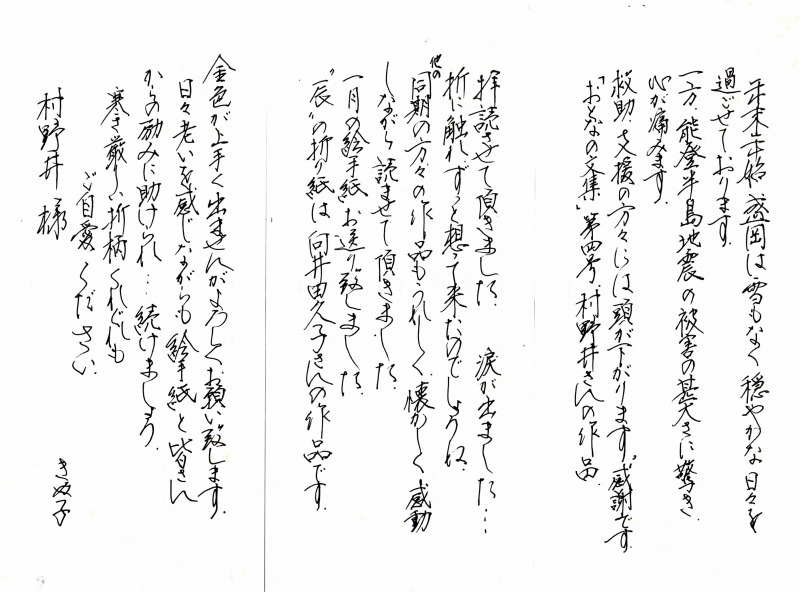 年末年始、盛岡は雪もなく穏やかな日々を
過ごせております。
一方、能登半島地震の被害の甚大さに驚き
心が痛みます。
救助、支援の方々には頭が下がります。"感謝"です。
「おとなの文集」第四号、村野井さんの作品
拝読させて頂きました。 涙が出ました…
折に触れずっと想って来たのでしょうね。
他の
同期の方々の作品もうれしく、懐かしく、感動
しながら読ませて頂きました。
一月の絵手紙お送り致しました。
"辰"の折り紙は向井田久子さんの作品です。
金色が上手く出ませんがよろしくお願い致します。
日々老いを感じながらも絵手紙と皆さん
からの励みに助けられ…続けましょう。
寒さ厳しい折柄くれぐれも
ご自愛ください。
きぬ子
村野井様